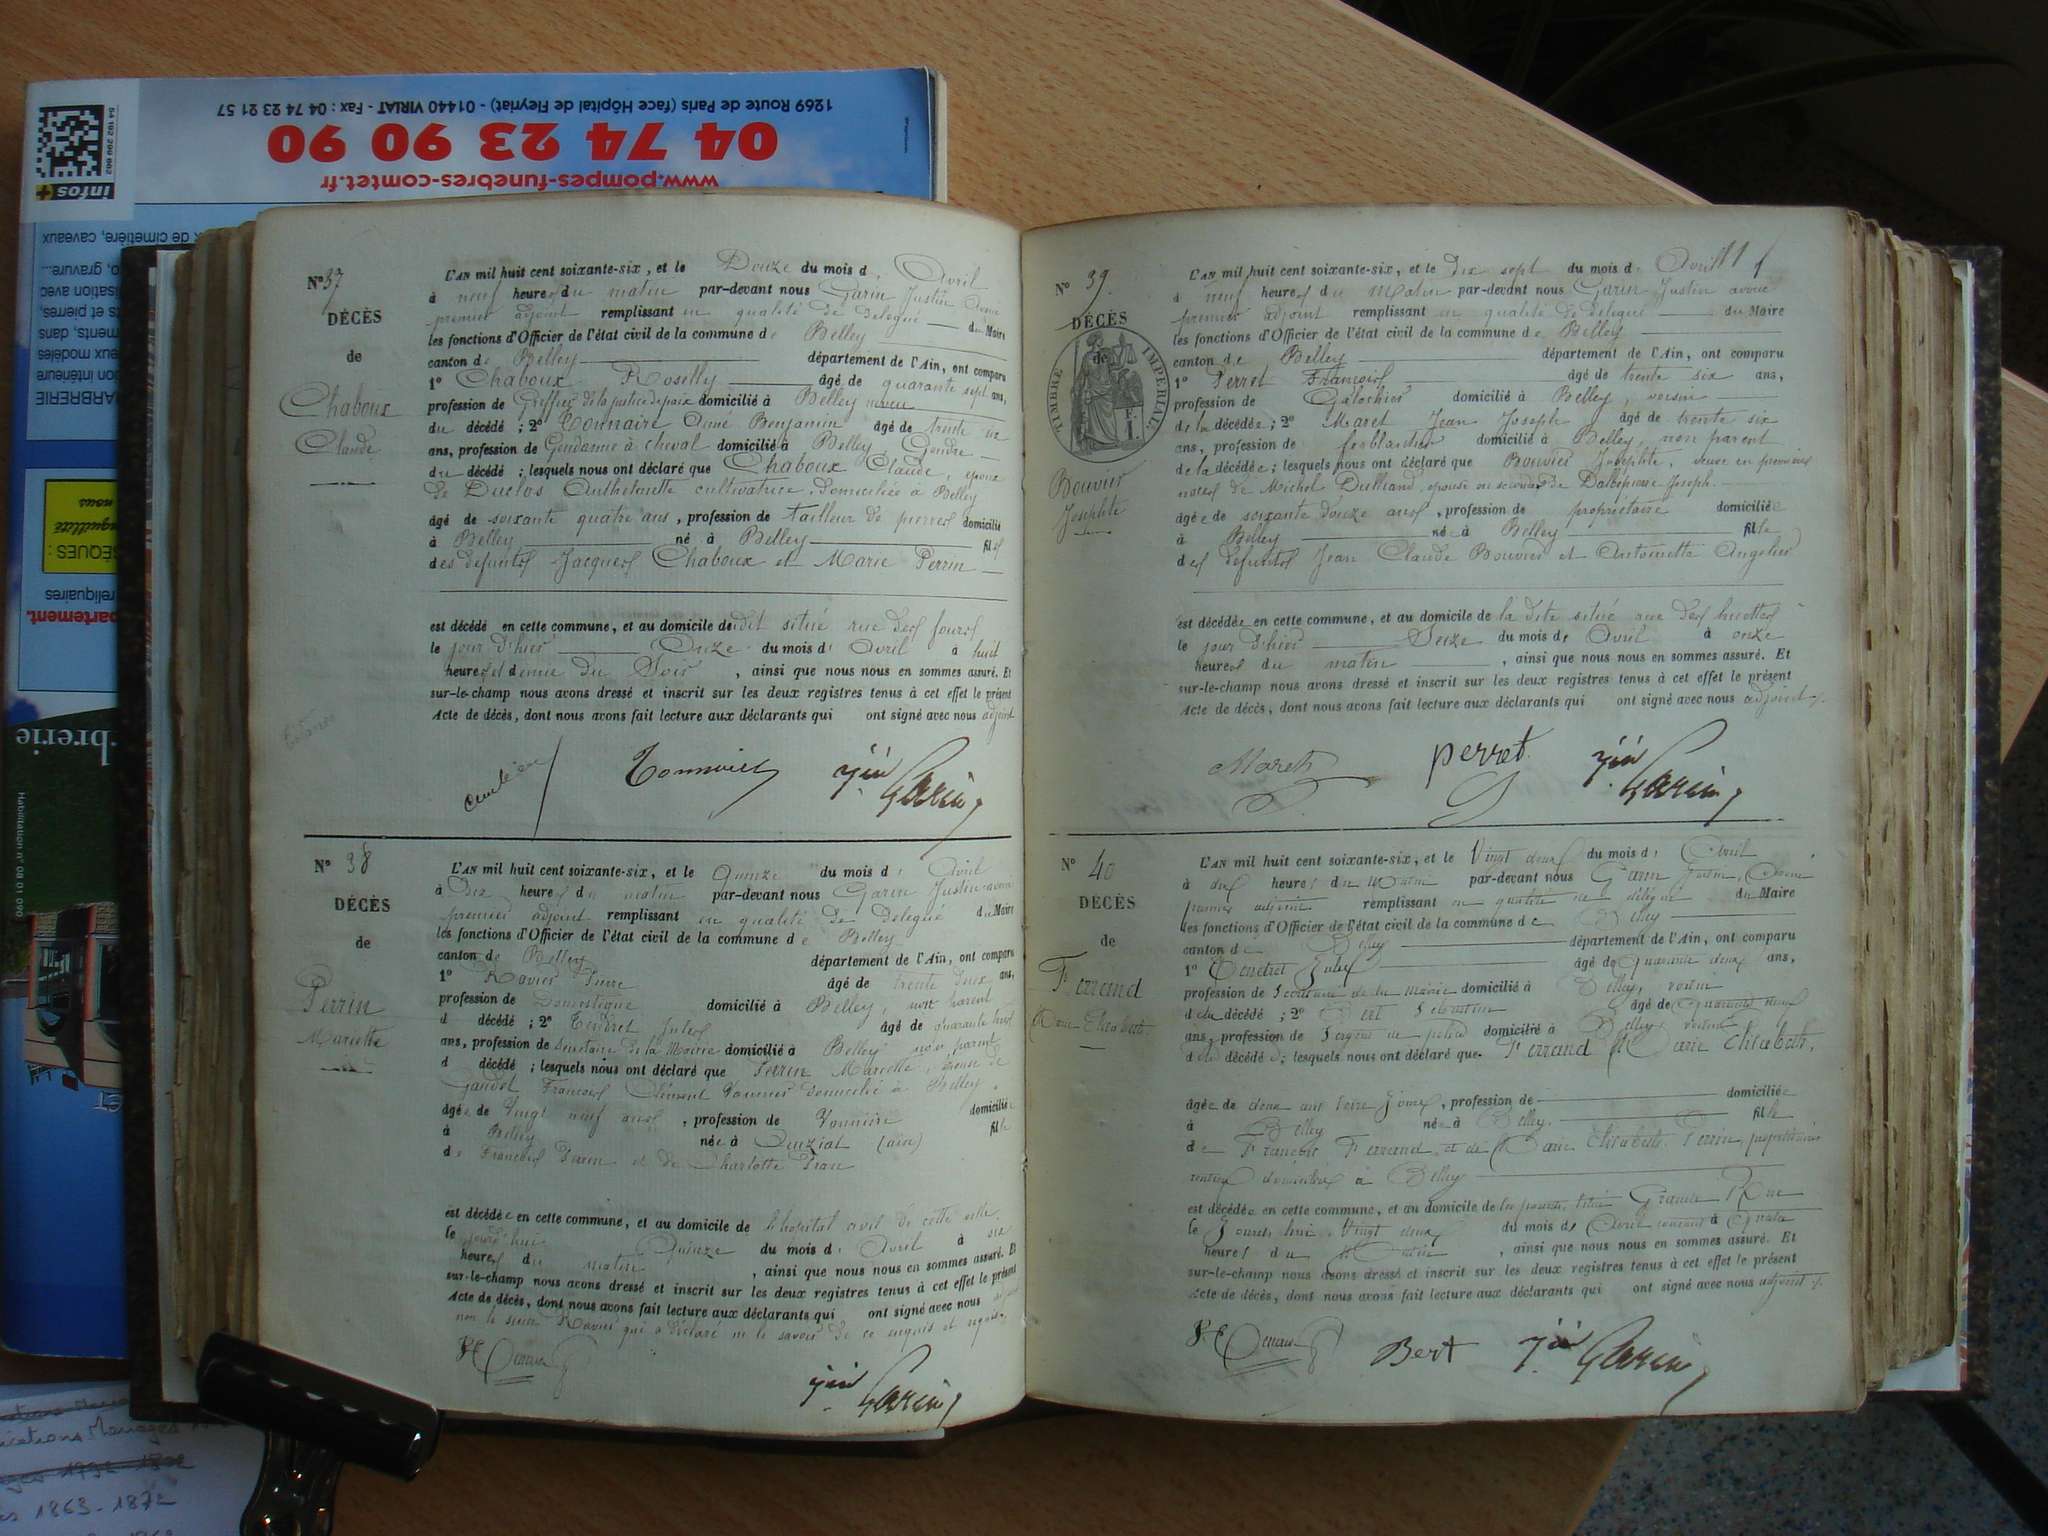 1269 Route de Paris (face Hôpital de Fleyriat) - 01440 VIRIAT - Fax : 04 74 23 21 57
04 74 23 90 90
www.pompes-funebres-comtet.fr
infos+
de cimetière, caveaux
gravure...
isation avec
et pierres,
ments, dans
eux modèles
on intérieure
ARBRERIE
nquillité
nous
SÈQUES :
reliquaires
partement.
brerie
Habilitation n° 08 01 090
ET
N° 37
DÉCÈS
de
Chaboux
Claude
L'AN mil huit cent soixante-six, et le Douze du mois d' Avril
à neuf heures du matin par-devant nous Garin Justin Avoué
premier adjoint remplissant en qualité de délégué du Maire
les fonctions d'Officier de l'état civil de la commune de Belley
canton de Belley département de l'Ain, ont comparu
1° Chaboux Roselly âgé de quarante sept ans,
profession de Greffier de la justice de paix domicilié à Belley neveu
du décédé ; 2° Tonnaire Anne Benjamin âgé de trente un
ans, profession de Gendarme à cheval domicilié à Belley, Gendre
du décédé ; lesquels nous ont déclaré que Chaboux Claude, époux
de Duclos Anthelmette cultivatrice, domiciliée à Belley
âgé de soixante quatre ans, profession de tailleur de pierres domicilié
à Belley né à Belley fils
des défunts Jacques Chaboux et Marie Perrin
est décédé en cette commune, et au domicile dudit situé rue des fours
le jour d'hier Onze du mois d' Avril à huit
heures et demie du Soir, ainsi que nous nous en sommes assuré. Et
sur-le-champ nous avons dressé et inscrit sur les deux registres tenus à cet effet le présent
Acte de décès, dont nous avons fait lecture aux déclarants qui ont signé avec nous adjoint
Jin Garin
N° 38
DÉCÈS
de
Perrin
Mariette
L'AN mil huit cent soixante-six, et le Quinze du mois d' Avril
à Dix heures du matin par-devant nous Garin Justin avoué
premier adjoint remplissant en qualité de délégué du Maire
les fonctions d'Officier de l'état civil de la commune de Belley
canton de Belley département de l'Ain, ont comparu
1° Ravier Pierre âgé de trente deux ans,
profession de Domestique domicilié à Belley, non parent
d décédé ; 2° Tendret Jules âgé de quarante huit
ans, profession de Secrétaire de la Mairie domicilié à Belley non parent
d décédé ; lesquels nous ont déclaré que Perrin Mariette, épouse de
Gaudet François Clément Vannier domicilié à Belley
âgée de Vingt neuf ans, profession de Vannière domiciliée
à Belley née à (ain) fille
de François Perrin et de Charlotte
est décédée en cette commune, et au domicile de l'hôpital civil de cette ville
le jourd'hui Quinze du mois d' Avril à six
heures du matin, ainsi que nous nous en sommes assuré. Et
sur-le-champ nous avons dressé et inscrit sur les deux registres tenus à cet effet le présent
Acte de décès, dont nous avons fait lecture aux déclarants qui ont signé avec nous
non le sieur Ravier qui a déclaré ne le savoir de ce enquis et requis.
Jin Garin
N° 39
DÉCÈS
de
TIMBRE IMPÉRIAL
Bouvier
Josephte
L'AN mil huit cent soixante-six, et le Dix sept du mois d' Avril
à neuf heures du Matin par-devant nous Garin Justin avoué
premier adjoint remplissant en qualité de délégué du Maire
les fonctions d'Officier de l'état civil de la commune de Belley
canton de Belley département de l'Ain, ont comparu
1° Perret François âgé de trente six ans,
profession de Galochier domicilié à Belley, voisin
de la décédée ; 2° Maret Jean Joseph âgé de trente six
ans, profession de ferblantier domicilié à Belley, non parent
de la décédée ; lesquels nous ont déclaré que Bouvier Josephte, veuve en premières
noces de Michel, épouse en secondes de Joseph.
âgée de soixante douze ans, profession de propriétaire domiciliée
à Belley née à Belley fille
des défunts Jean Claude Bouvier et Antoinette Angelier
est décédée en cette commune, et au domicile de la dite situé rue des
le jour d'hier Seize du mois de Avril à onze
heures du matin, ainsi que nous nous en sommes assuré. Et
sur-le-champ nous avons dressé et inscrit sur les deux registres tenus à cet effet le présent
Acte de décès, dont nous avons fait lecture aux déclarants qui ont signé avec nous adjoint
Maret perret Jin Garin
N° 40
DÉCÈS
de
Ferrand
Marie Elisabeth
L'AN mil huit cent soixante-six, et le Vingt deux du mois d' Avril
à dix heures du Matin par-devant nous Garin Justin, Avoué
premier adjoint remplissant en qualité de délégué du Maire
les fonctions d'Officier de l'état civil de la commune de Belley
canton de Belley département de l'Ain, ont comparu
1° Tendret Jules âgé de quarante deux ans,
profession de Secrétaire de la Mairie domicilié à Belley, voisin
de la décédé ; 2° Bert Sébastien âgé de Quarante neuf
ans, profession de Sergent de police domicilié à Belley voisin
de la décédée ; lesquels nous ont déclaré que Ferrand Marie Elisabeth,
âgée de deux ans treize jours, profession de domiciliée
à Belley née à Belley fille
de François Ferrand et de Marie Elisabeth Perrin, propriétaires
rentiers domiciliés à Belley
est décédée en cette commune, et au domicile de situé Grande Rue
le Jourd'hui Vingt deux du mois de Avril courant à Quatre
heures du Matin, ainsi que nous nous en sommes assuré. Et
sur-le-champ nous avons dressé et inscrit sur les deux registres tenus à cet effet le présent
Acte de décès, dont nous avons fait lecture aux déclarants qui ont signé avec nous adjoint
Bert Jin Garin
1863-1872